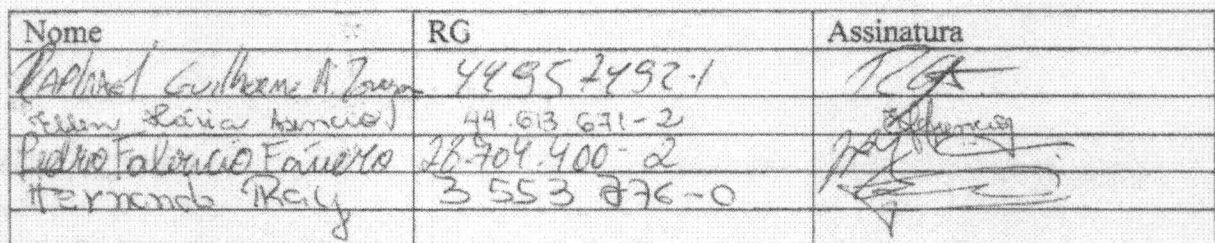 Nome RG Assinatura
Raphael Guilherme A. 44957492-1
Ellen Asencio 44.613 671-2
Pedro Fabricio 28.704.400-2
Hernando Ray 3 553 776-0